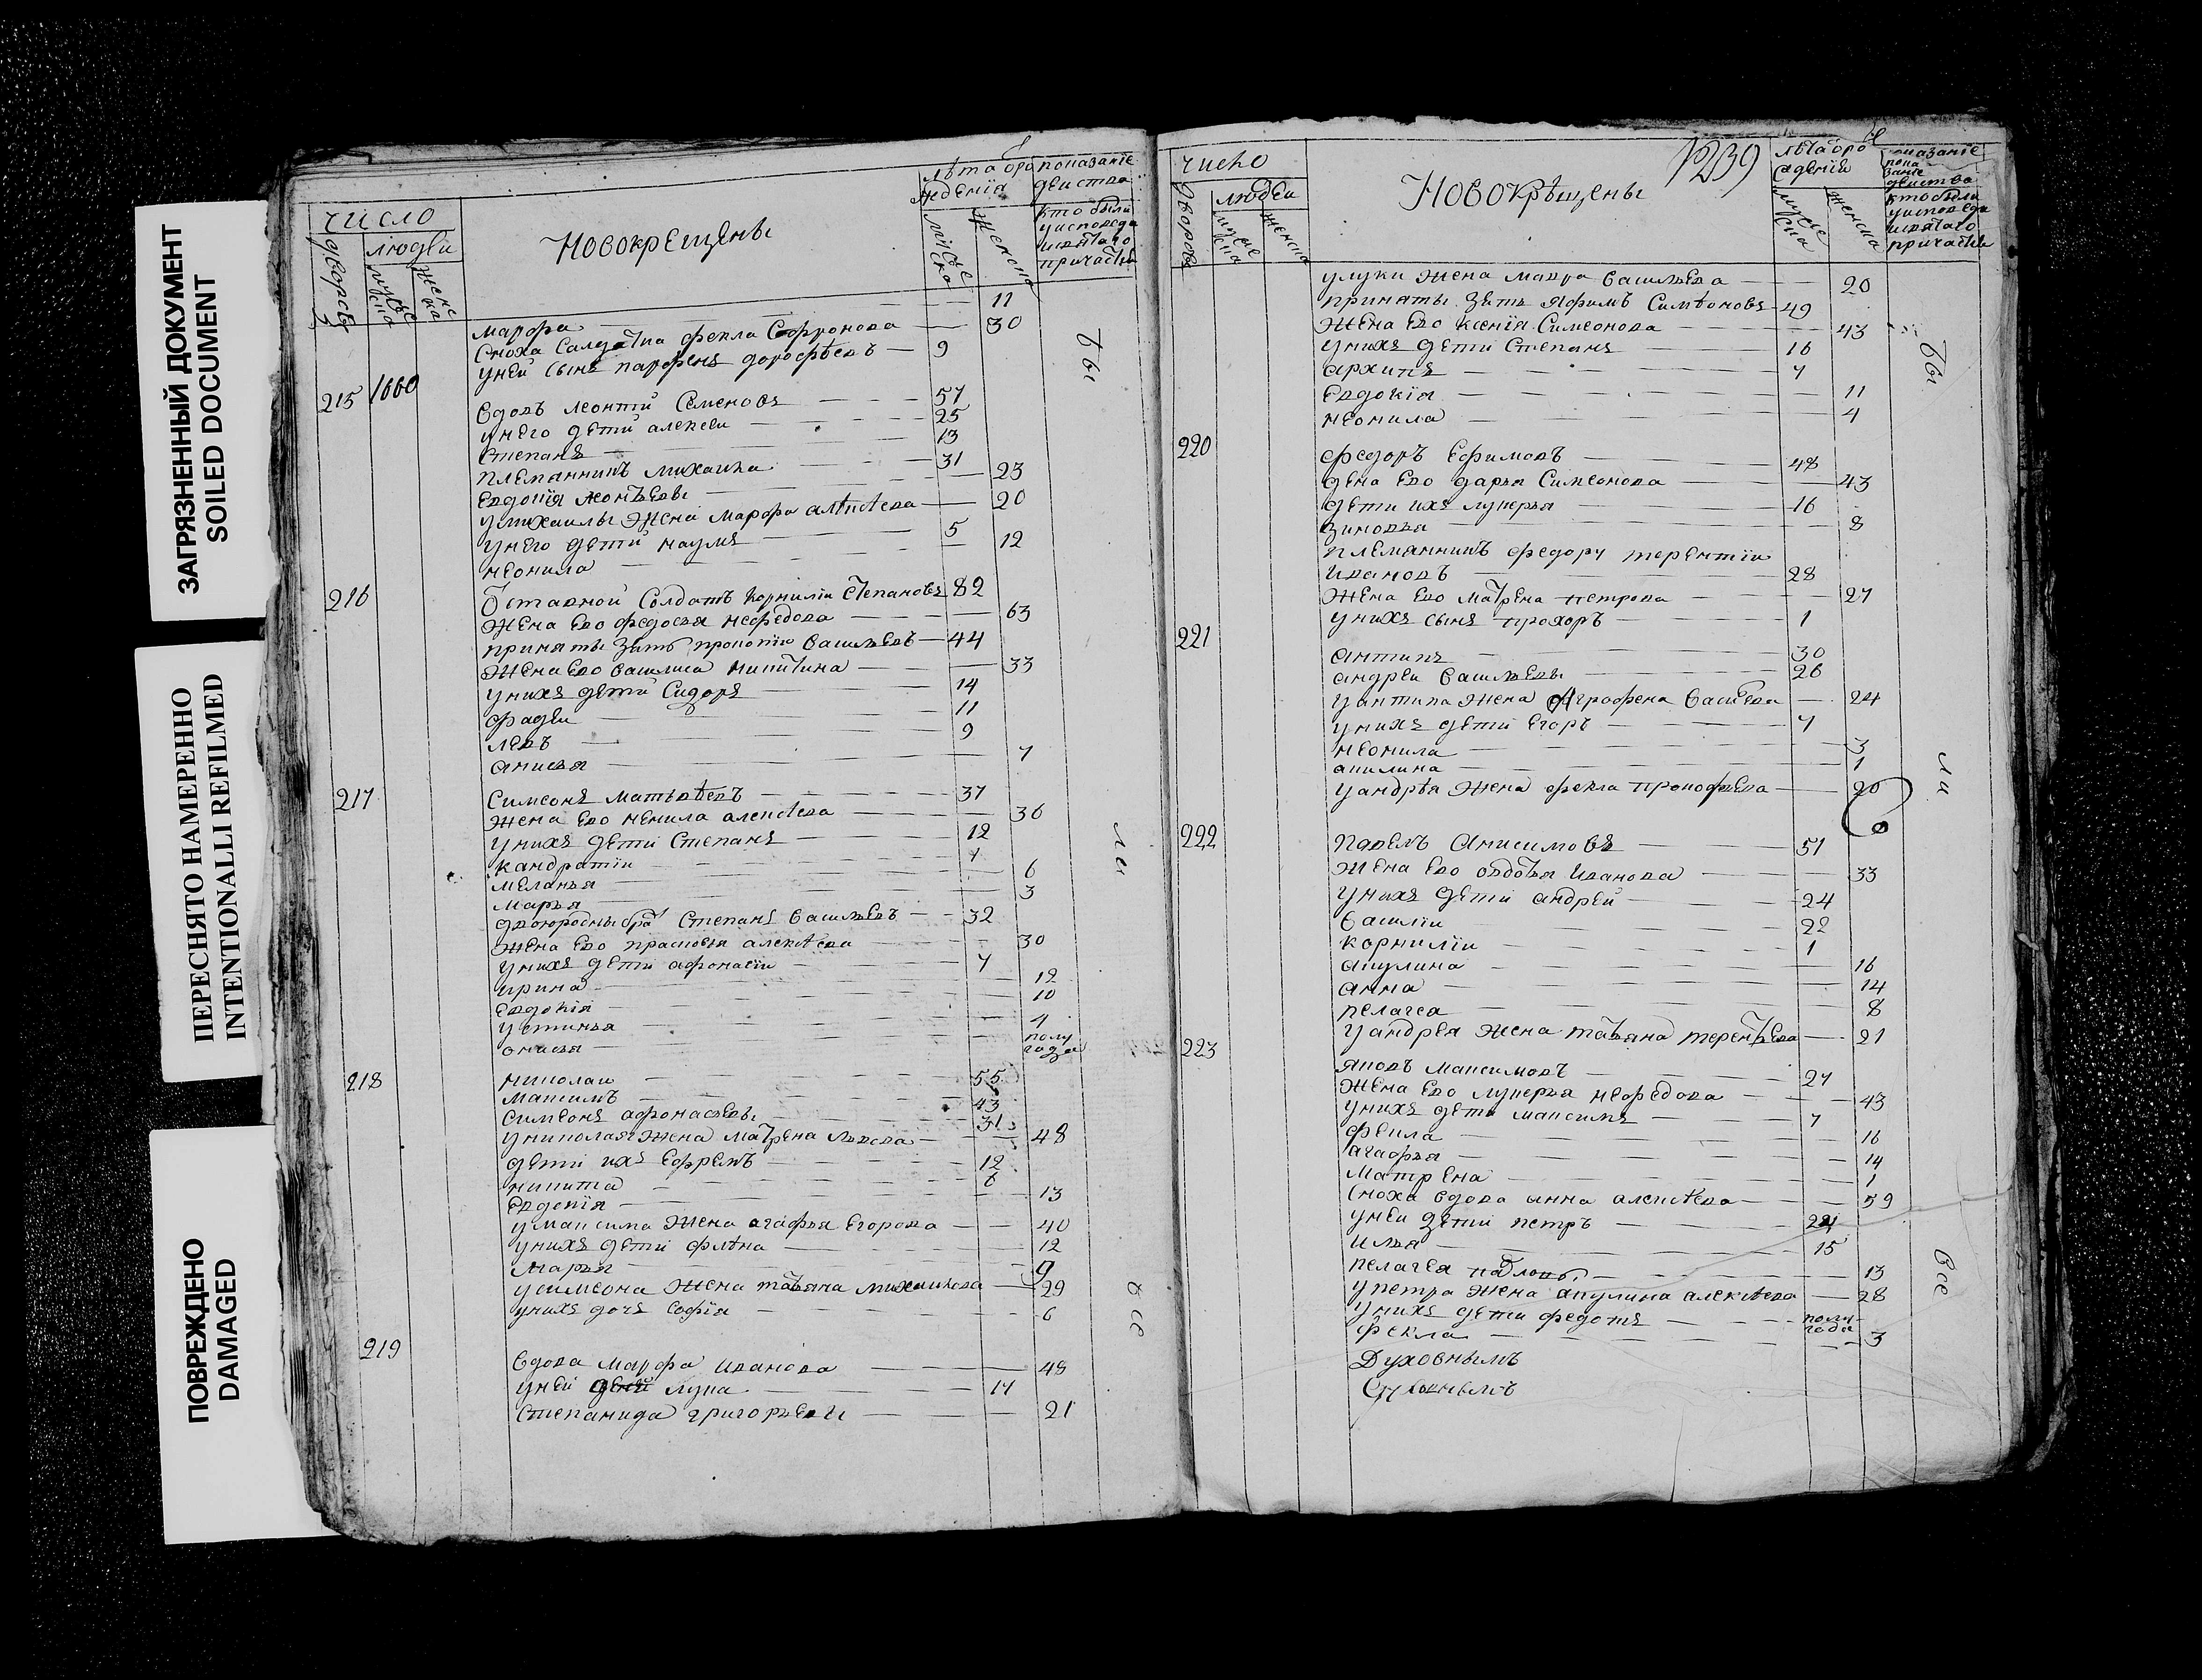 ЗАГРЯЗНЕННЫЙ ДОКУМЕНТ
SOILED DOCUMENT
ПЕРЕСНЯТО НАМЕРЕННО
INTENTIONALLI REFILMED
ПОВРЕЖДЕНО
DAMAGED
число
дворовъ
людеи
Новокрещены
лѣта
показанїе
кто были
марфа — 11
Сноха Салдатка фекла Софронова — 30
уней сынъ парфенъ дорофѣевъ — 9
215 1660
вдовъ леонтий Семеновъ — 57
унего дети алексеи — 25
Степанъ — 13
племянникъ михаила — 31
Евдокїя — 23
умихаилы жена марфа алеѣева — 20
унего дети наумъ — 5
неонила — 12
216
Отставной Солдатъ корнилїи Степановъ 82
жена ево федосья нефедова — 63
приняты зять прокопїи васильевъ — 44
жена ево василиса никитина — 33
унихъ дети Сидоръ — 14
фадеи — 11
левъ — 9
анисья — 7
217
Симеонъ матьвѣевъ — 37
жена ево ненила алексѣева — 36
унихъ дети Степанъ — 12
кандратїи — 7
меланья — 6
марья — 3
двоюродны братъ Степанъ васильевъ — 32
жена ево прасковья алексѣева — 30
унихъ дети афонасїи — 7
ирина — 12
Евдокїя — 10
устинья — 4
онисья — полу года
218
николаи — 55
максимъ — 43
симеонъ афонасьевы — 31
униколая жена матрена львова — 48
дети ихъ ефремъ — 12
никита — 6
Евдокїя — 13
умаксима жена агафья егорова — 40
унихъ дети — 12
марья — 9
усимеона жена татьяна михаилова — 29
унихъ дочь софїя — 6
219
вдова марфа иванова — 48
уней дети лука — 17
степанида григорьевы — 21
бы
ли
все
1239
число
дворовъ
людеи
Новокрѣщены
лѣта
показанїе
кто были
улуки жена мавра васильева — 20
приняты зять Яфимъ Симѣоновъ — 49
жена ево ксенїя Симеонова — 43
унихъ дети Степанъ — 16
архипъ — 7
Евдокїя — 11
неонила — 4
220
федоръ Ефимовъ — 48
жена ево дарья Симеонова — 43
дети ихъ лукерья — 16
зиновья — 8
племянникъ федору терентїи
ивановъ — 28
жена ево матрена петрова — 27
унихъ сынъ прохоръ — 1
221
антипъ — 30
андреи васильевы — 26
уантипа жена Аграфена васильева — 24
унихъ дети егоръ — 7
неонила — 3
акилина — 1
уандрѣя жена фекла прокофьева — 20
222
павелъ Анисимовъ — 51
жена ево овдотья иванова — 33
унихъ дети андрей — 24
василїи — 22
корнилїи — 1
акулина — 16
анна — 14
пелагея — 8
уандрея жена татьяна терентьева — 21
223
яковъ максимовъ — 27
жена ево лукерья нефедова — 43
унихъ дети максимъ — 7
фекла — 16
агафья — 14
матрена — 1
сноха вдова анна алексѣева — 59
уней дети петръ — 24
илья — 15
пелагея — 13
упетра жена акулина алексѣева — 28
унихъ дети федотъ — полугода
Фекла — 3
Духовнымъ
бы
ли
все